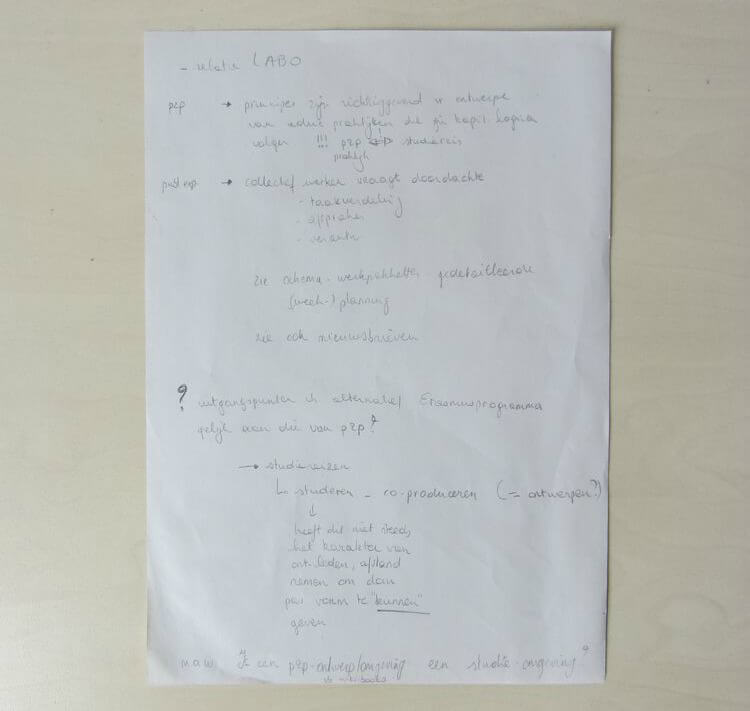 - relatie LABO
p2p → principes zijn richtinggevend v ontwerpe
van andere praktijken die gn kapit. logica
volgen !!! p2p ⇔ studiereis
praktijk
→ collectief werken vraagt doordachte
- taakverdeling
- afspraken
- verantw
zie schema - werkpakketten gedetailleerde
(week-) planning
zie ook nieuwsbrieven
? uitgangspunten vh alternatief Erasmusprogramma
gelijk aan die van p2p?
→ studiereizen
↳ studeren - co-produceren (= ontwerpen?)
↓
heeft dit niet steeds
het karakter van
ontleden, afstand
nemen om dan
pas vorm te "kunnen"
geven
m.a.w. Is een p2p-ontwerpomgeving een studie-omgeving?